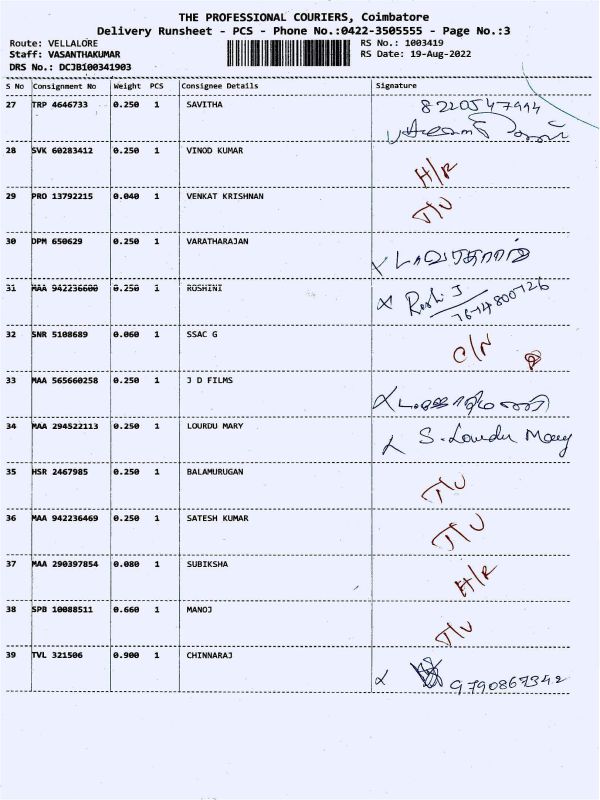 THE PROFESSIONAL COURIERS, Coimbatore
Delivery Runsheet - PCS - Phone No.:0422-3505555 - Page No.:3
Route: VELLALORE
RS No.: 1003419
Staff: VASANTHAKUMAR
RS Date: 19-Aug-2022
DRS No.: DCJB100341903
S No Consignment No Weight PCS Consignee Details Signature
27 TRP 4646733 0.250 1 SAVITHA
28 SVK 60283412 0.250 1 VINOD KUMAR H/R
29 PRO 13792215 0.040 1 VENKAT KRISHNAN
30 DPM 650629 0.250 1 VARATHARAJAN
31 MAA 942236600 0.250 1 ROSHINI
32 SNR 5108689 0.060 1 SSAC G C/N
33 MAA 565660258 0.250 1 J D FILMS
34 MAA 294522113 0.250 1 LOURDU MARY S. Lourdu Mary
35 HSR 2467985 0.250 1 BALAMURUGAN
36 MAA 942236469 0.250 1 SATESH KUMAR
37 MAA 290397854 0.080 1 SUBIKSHA H/R
38 SPB 10088511 0.660 1 MANOJ
39 TVL 321506 0.900 1 CHINNARAJ 9790867342